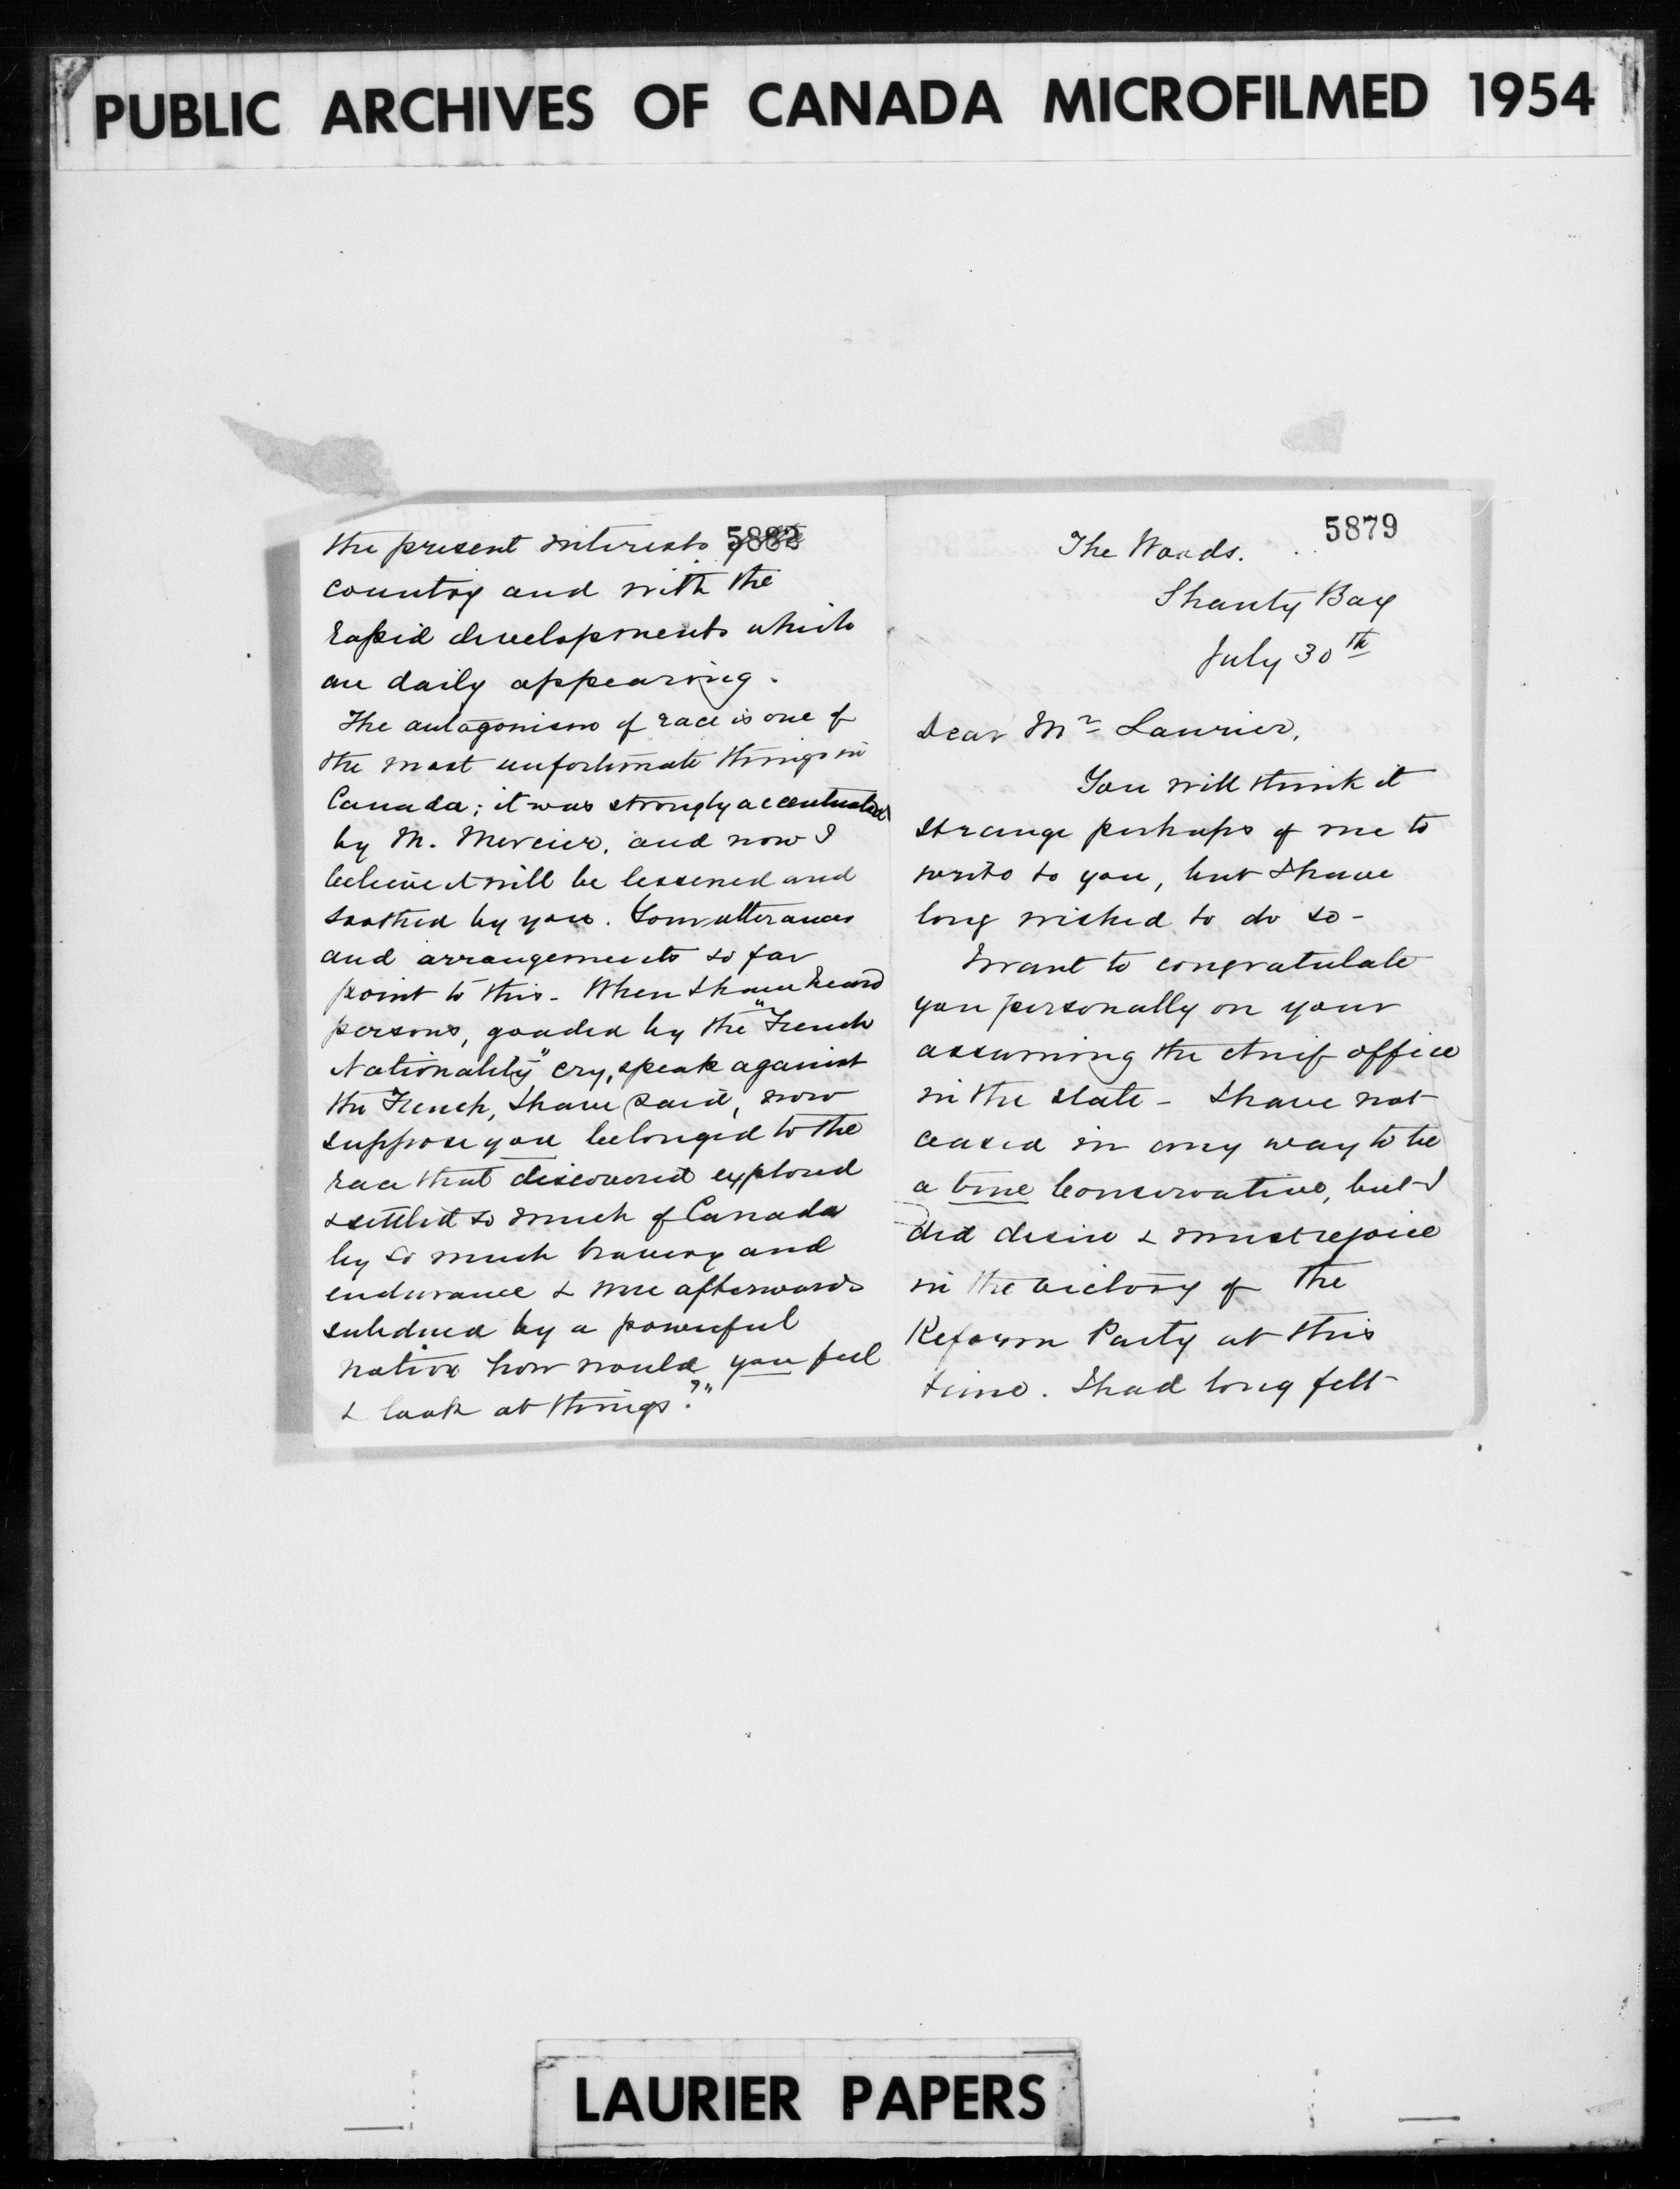 PUBLIC ARCHIVES OF CANADA MICROFILMED 1954
5882
the present interests of the
country and with the
rapid developments which
are daily appearing.
The antagonism of race is one of
the most unfortunate things in
Canada; it was strongly accentuated
by M. Mercier, and now I
believe it will be lessened and
soothed by you. Your utterances
and arrangements so far
point to this. When I have heard
persons, goaded by the "French
Nationality" cry, speak against
the French, I have said, now
suppose you belonged to the
race that discovered explored
& settled so much of Canada
by so much bravery and
endurance & were afterwards
subdued by a powerful
nation how would you feel
& look at things?"
5879
The Woods.
Shanty Bay
July 30th
Dear Mr Laurier,
You will think it
strange perhaps of me to
write to you, but I have
long wished to do so -
I want to congratulate
you personally on your
assuming the chief office
in the state - I have not
ceased in any way to be
a true Conservative, but I
did desire & must rejoice
in the victory of the
Reform Party at this
time. I had long felt
LAURIER PAPERS